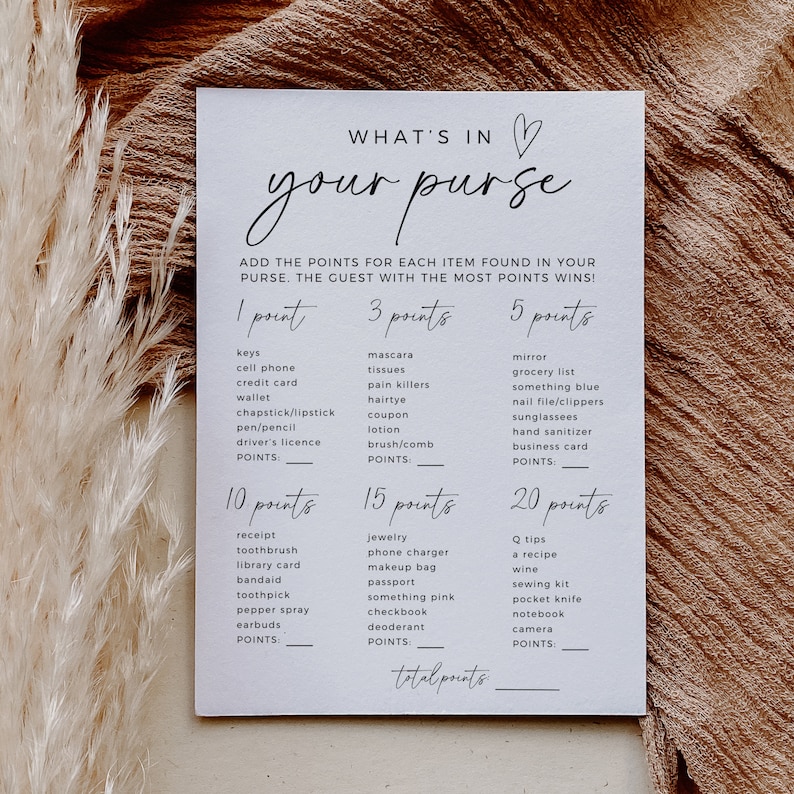 WHAT'S IN
your purse
ADD THE POINTS FOR EACH ITEM FOUND IN YOUR
PURSE. THE GUEST WITH THE MOST POINTS WINS!
1 point
keys
cell phone
credit card
wallet
chapstick/lipstick
pen/pencil
driver's licence
POINTS: ____
3 points
mascara
tissues
pain killers
hairtye
coupon
lotion
brush/comb
POINTS: ____
5 points
mirror
grocery list
something blue
nail file/clippers
sunglassees
hand sanitizer
business card
POINTS: ____
10 points
receipt
toothbrush
library card
bandaid
toothpick
pepper spray
earbuds
POINTS: ____
15 points
jewelry
phone charger
makeup bag
passport
something pink
checkbook
deoderant
POINTS: ____
20 points
Q tips
a recipe
wine
sewing kit
pocket knife
notebook
camera
POINTS: ____
total points: ________